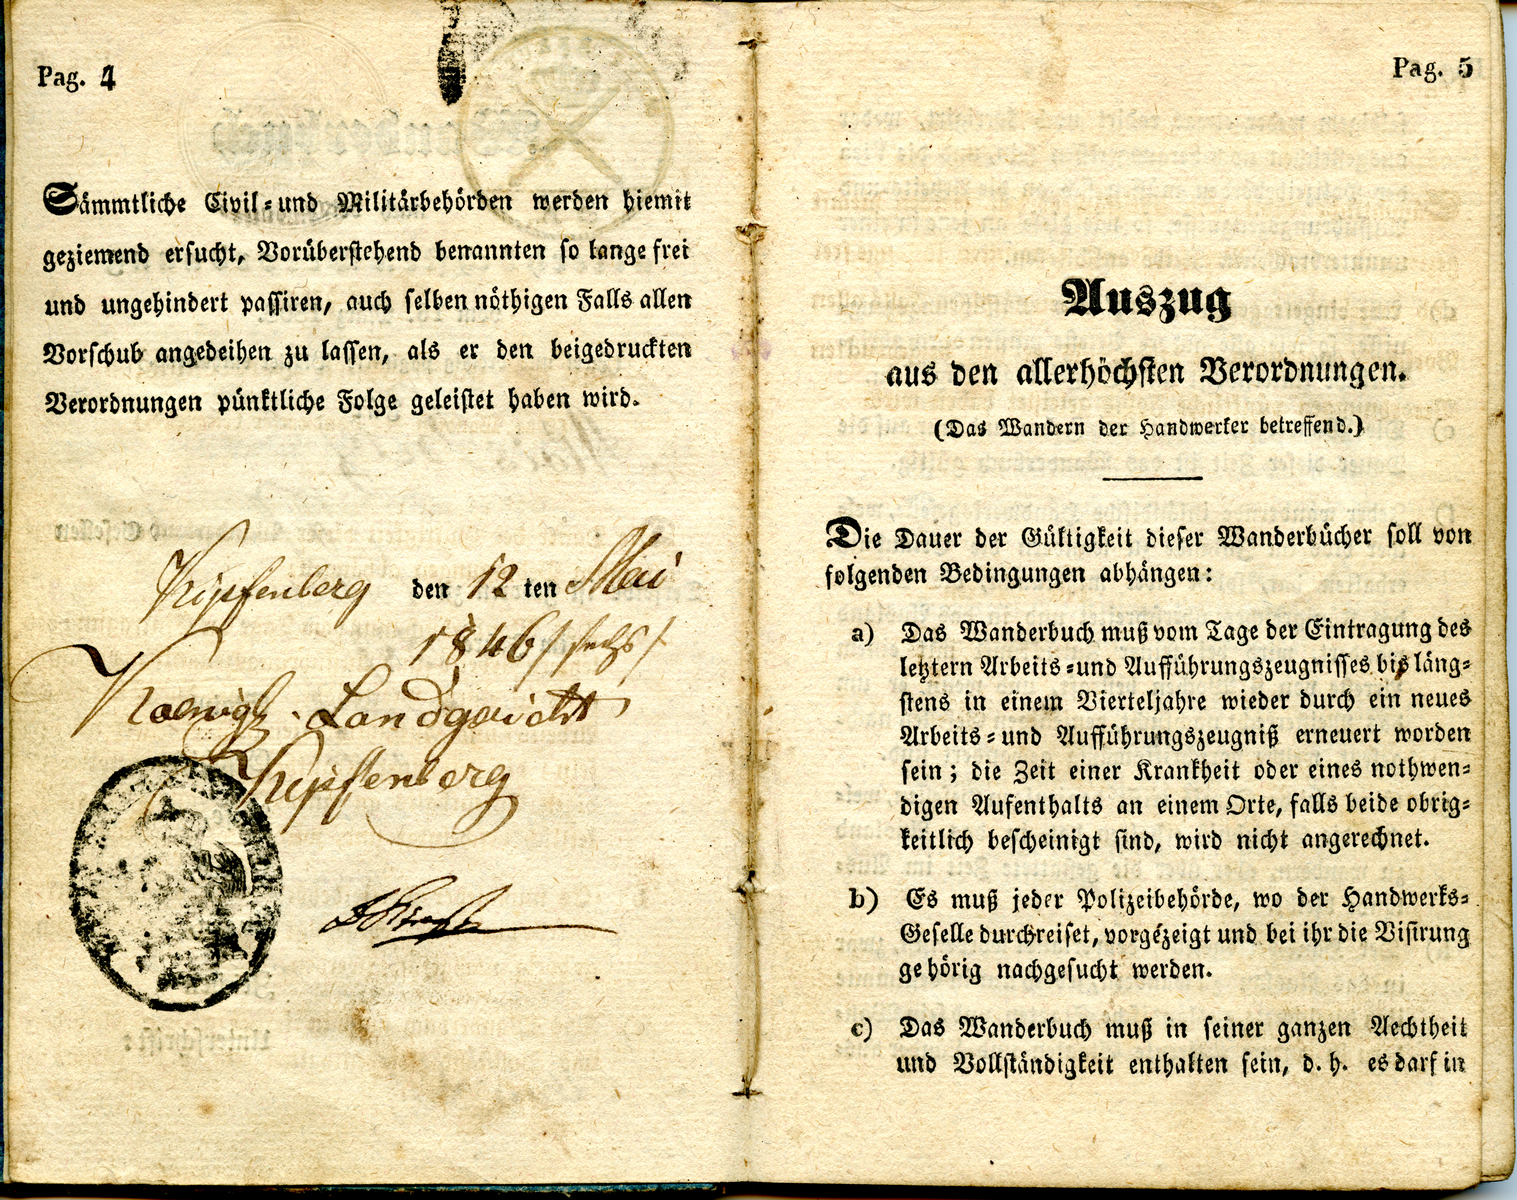 Pag. 4
Sämmtliche Civil- und Militärbehörden werden hiemit
geziemend ersucht, Vorüberstehend benannten so lange frei
und ungehindert passiren, auch selben nöthigen Falls allen
Vorschub angedeihen zu lassen, als er den beigedruckten
Verordnungen pünktliche Folge geleistet haben wird.
Kipfenberg den 12 ten Mai
1846 / sechs /
Koenigl. Landgericht
Kipfenberg
Pag. 5
Auszug
aus den allerhöchsten Verordnungen.
(Das Wandern der Handwerker betreffend.)
Die Dauer der Gültigkeit dieser Wanderbücher soll von
folgenden Bedingungen abhängen:
a) Das Wanderbuch muß vom Tage der Eintragung des
letztern Arbeits- und Aufführungszeugnisses bis läng-
stens in einem Vierteljahre wieder durch ein neues
Arbeits- und Aufführungszeugniß erneuert worden
sein; die Zeit einer Krankheit oder eines nothwen-
digen Aufenthalts an einem Orte, falls beide obrig-
keitlich bescheinigt sind, wird nicht angerechnet.
b) Es muß jeder Polizeibehörde, wo der Handwerks-
Geselle durchreiset, vorgezeigt und bei ihr die Visirung
gehörig nachgesucht werden.
c) Das Wanderbuch muß in seiner ganzen Aechtheit
und Vollständigkeit enthalten sein, d. h. es darf in